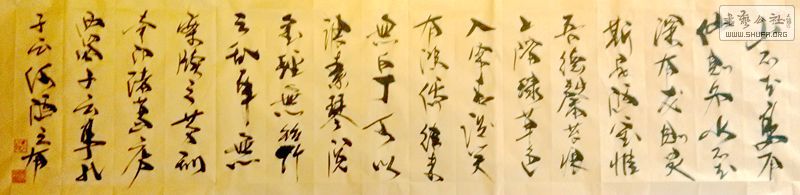 山不在高有
仙则名水不在
深有龙则灵
斯是陋室惟
吾德馨苔痕
上阶绿草色
入帘青谈笑
有鸿儒往来
無白丁可以
调素琴阅
金经無丝竹
之乱耳無
案牍之劳形
南阳诸葛庐
西蜀子云亭孔
子云何陋之有
WWW.SHUFA.ORG